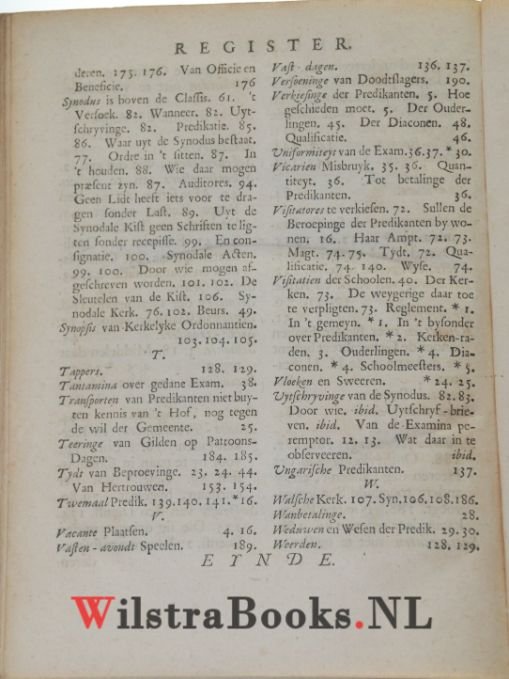 REGISTER.
deren. 175. 176. Van Officie en
Beneficie. 176
Synodus is boven de Classis. 61. 't
Versoek. 82. Wanneer. 82. Uyt-
schryvinge. 82. Predikatie. 85.
86. Waar uyt de Synodus bestaat.
77. Ordre in 't sitten. 87. In
't houden. 88. Wie daar mogen
præsent zyn. 87. Auditores. 94.
Geen Lidt heeft iets voor te dra-
gen sonder Last. 89. Uyt de
Synodale Kist geen Schriften te lig-
ten sonder recepisse. 99. En con-
signatie. 100. Synodale Acten.
99. 100. Door wie mogen af-
geschreven worden. 101. 102. De
Sleutelen van de Kist. 106. Sy-
nodale Kerk. 76. 102. Beurs. 49.
Synopsis van Kerkelyke Ordonnantien.
103. 104. 105.
T.
Tappers. 128. 129.
Tantamina over gedane Exam. 38.
Transporten van Predikanten niet buy-
ten kennis van 't Hof, nog tegen
de wil der Gemeente. 25.
Teeringe van Gilden op Patroons-
Dagen. 184. 185.
Tydt van Beproevinge. 23. 24. 44.
Van Hertrouwen. 153. 154.
Twemaal Predik. 139. 140. 141. *16.
V.
Vacante Plaatsen. 4. 16.
Vasten-avondt Speelen. 189.
Vast-dagen. 136. 137.
Versoeninge van Doodtslagers. 190.
Verkiesinge der Predikanten. 5. Hoe
geschieden moet. 5. Der Ouder-
lingen. 45. Der Diaconen. 48.
Qualificatie. 46.
Uniformiteyt van de Exam. 36. 37. * 30.
Vicarien Misbruyk. 35. 36. Quan-
titeyt. 36. Tot betalinge der
Predikanten. 36.
Visitatores te verkiesen. 72. Sullen de
Beroepinge der Predikanten by wo-
nen. 16. Haar Ampt. 72. 73.
Magt. 74. 75. Tydt. 72. Qua-
lificatie. 74. 140. Wyse. 74.
Visitatien der Schoolen. 40. Der Ker-
ken. 73. De weygerige daar toe
te verpligten. 73. Reglement. * 1.
In 't gemeyn. * 1. In 't bysonder
over Predikanten. * 2. Kerken-ra-
den. 3. Ouderlingen. * 4. Dia-
conen. * 4. Schoolmeesters. * 5.
Vloeken en Sweeren. * 24. 25.
Uytschryvinge van de Synodus. 82. 83.
Door wie. ibid. Uytschryf-brie-
ven. ibid. Van de Examina pe-
remptor. 12. 13. Wat daar in te
observeeren. ibid.
Ungarische Predikanten. 137.
W.
Walsche Kerk. 107. Syn. 106. 108. 186.
Wanbetalinge. 28.
Weduwen en Wesen der Predik. 29. 30.
Weerden. 128. 129.
EINDE.
WilstraBooks.NL